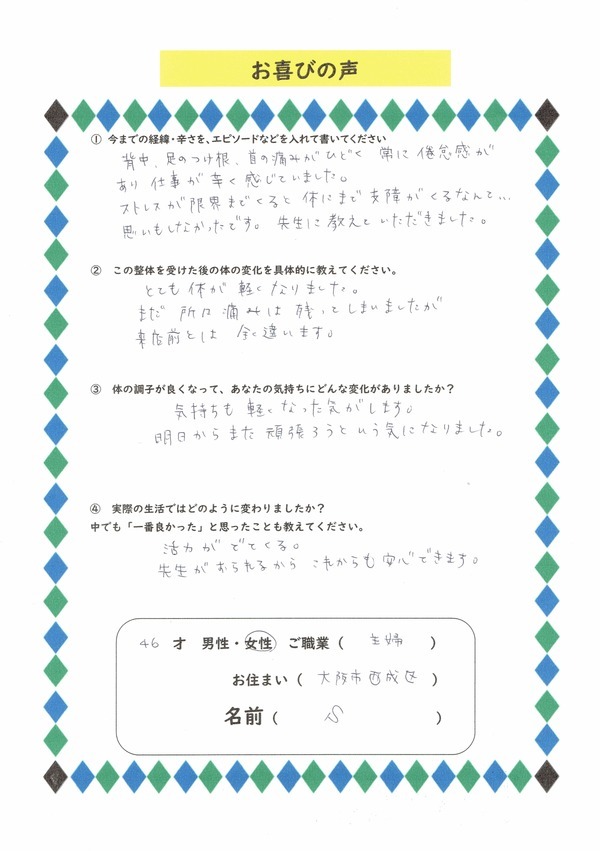 お喜びの声
① 今までの経緯・辛さを、エピソードなどを入れて書いてください
背中、足のつけ根、首の痛みがひどく 常に 倦怠感が
あり 仕事が 辛く感じていました。
ストレスが限界までくると 体にまで 支障がくるなんて…
思いもしなかったです。先生に教えていただきました。
② この整体を受けた後の体の変化を具体的に教えてください。
とても 体が 軽くなりました。
まだ 所々 痛みは 残ってしまいましたが
来店前とは 全く違います。
③ 体の調子が良くなって、あなたの気持ちにどんな変化がありましたか？
気持ちも 軽くなった気がします。
明日からまた 頑張ろうという気になりました。
④ 実際の生活ではどのように変わりましたか？
中でも「一番良かった」と思ったことも教えてください。
活力が でてくる。
先生がおられるから これからも 安心できます。
46 才 男性・女性 ご職業（ 主婦 ）
お住まい（ 大阪市西成区 ）
名前（ S ）